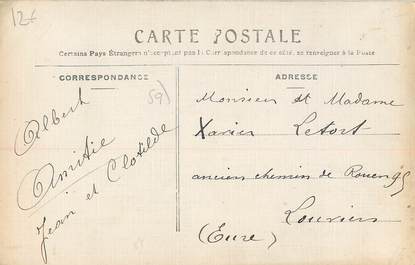 12€
CARTE POSTALE
Certains Pays Étrangers n'acceptant pas la Correspondance de ce côté, se renseigner à la Poste
CORRESPONDANCE
ADRESSE
59)
Albert
Amitié
Jean et Clotilde
Monsieur et Madame
Xavier Letort
ancien chemin de Rouen 95
Louviers
(Eure)